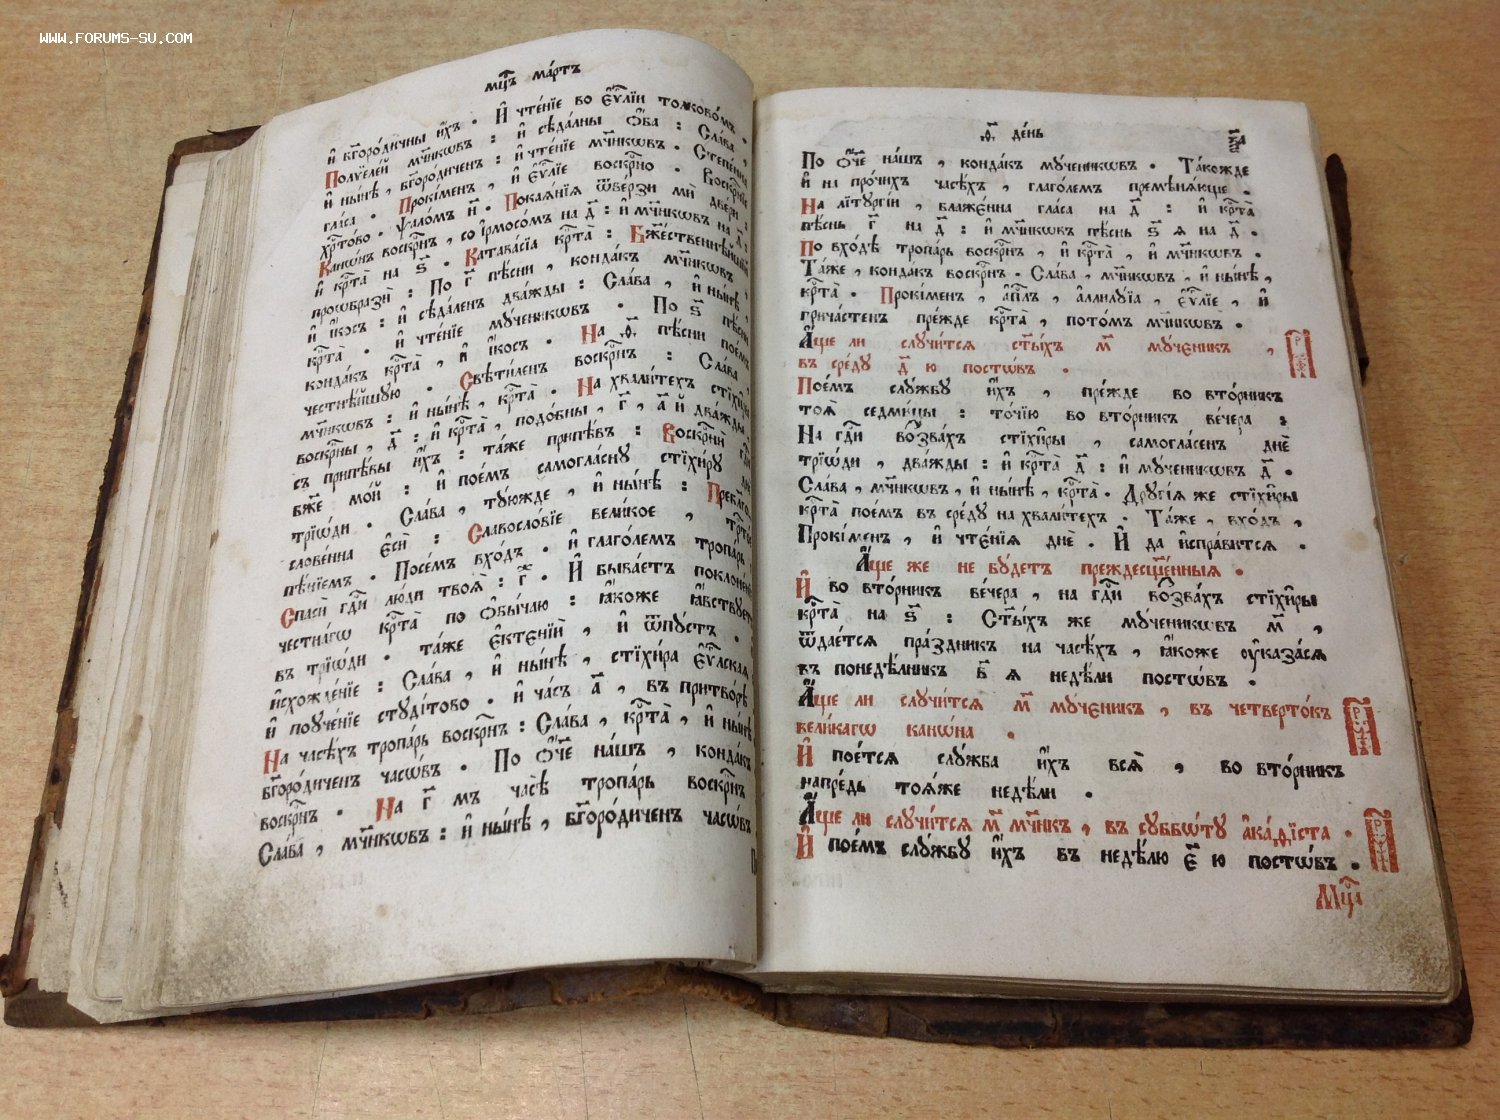 WWW.FORUMS-SU.COM
мцⷭ҇ъ ма́ртъ
и҆ бг҃оро́дичны и҆́хъ . И҆ чте́нїе во є҆ѵⷢ҇лїи толко́во́мъ .
Полѵеле́й мч҃нкѡвъ : и҆ сѣда́лны ѻ҆́ба : Сла́ва ,
и҆ ны́нѣ , бг҃оро́диченъ : и҆ чте́нїе мч҃нкѡвъ . Степе́нна
гла́са . Прокі́менъ , и҆ є҆ѵⷢ҇лїе воскрⷭ҇но . Воскрⷭ҇нїе
хрⷭ҇то́во . Ѱало́мъ н҃ . Покаѧ́нїѧ ѿве́рзи мѝ две́ри :
Кано́нъ воскрⷭ҇нъ , со і҆рмосо́мъ на д҃ : и҆ мч҃нкѡвъ на д҃ :
и҆ крⷭ҇та̀ на ѕ҃ . Катава́сїа крⷭ҇та̀ : Бж҃е́ственнѣйшїй
проѡбразѝ : По г҃ пѣ́сни , конда́къ мч҃нкѡвъ ,
и҆ і҆́косъ : и҆ сѣда́ленъ два́жды : Сла́ва , и҆ ны́нѣ ,
крⷭ҇та̀ . и҆ чте́нїе мѹ́ченикѡвъ . По ѕ҃ пѣ́сни
конда́къ крⷭ҇та̀ , и҆ і҆́косъ . На ѳ҃ пѣ́сни пое́мъ
честнѣ́йшую . Свѣти́ленъ воскрⷭ҇нъ : Сла́ва ,
мч҃нкѡвъ : и҆ ны́нѣ , крⷭ҇та̀ . На хвали́техъ стїхи҆ры
воскрⷭ҇ны , д҃ : и҆ крⷭ҇та̀ , подо́бны , г҃ , а҃ й два́жды ,
съ припѣ́вы и҆́хъ : та́же припѣ́въ : Воскрⷭ҇нѝ гдⷭ҇и
бж҃е мо́й : и҆ пое́мъ самогла́сну стїхи́ру дне
трїѡ́ди . Сла́ва , тꙋ́южде , и҆ ны́нѣ : Преблг҃о
слове́нна є҆сѝ : Славосло́вїе вели́кое , трⷭ҇то́
пѣ́нїемъ . Посе́мъ вхо́дъ . и҆ глаго́лемъ тропа́рь .
Спасѝ гдⷭ҇и лю́ди твоѧ̀ : г҃ . И҆ быва́етъ поклоне́нїе
честна́гѡ крⷭ҇та̀ по ѻ҆бы́чаю : ꙗ҆́коже ꙗ҆́вствꙋетъ
въ трїѡ́ди . та́же є҆ктенїѝ , и҆ ѿпꙋ́стъ .
и҆схожде́нїе : Сла́ва , и҆ ны́нѣ , стїхи́ра є҆ѵⷢ҇лская
и҆ поꙋче́нїе стꙋді́тово . и҆ ча́съ а҃ , въ притво́рѣ
На часѣ́хъ тропа́рь воскрⷭ҇нъ : Сла́ва , крⷭ҇та̀ , и҆ ны́нѣ
бг҃оро́диченъ часѡ́въ . По ѻ҆́ч҃е на́шъ , конда́къ
воскрⷭ҇нъ . На г҃ мъ ча́сѣ тропа́рь воскрⷭ҇нъ
Сла́ва , мч҃нкѡвъ : и҆ ны́нѣ , бг҃оро́диченъ часѡ́въ
ѳ҃ де́нь
По ѻ҆́ч҃е на́шъ , конда́къ мꙋ́ченикѡвъ . Та́кожде
и҆ на про́чихъ часѣ́хъ , глаго́лемъ премѣнѧ́юще .
На лїтꙋргі́и , блаже́нна гла́са на д҃ : и҆ крⷭ҇та̀
пѣ́снь г҃ на д҃ : и҆ мч҃нкѡвъ пѣ́снь ѕ҃ ѧ на д҃ .
По вхо́дѣ тропа́рь воскрⷭ҇нъ , и҆ крⷭ҇та̀ , и҆ мч҃нкѡвъ .
Та́же , конда́къ воскрⷭ҇нъ . Сла́ва , мч҃нкѡвъ , и҆ ны́нѣ ,
крⷭ҇та̀ . Прокі́менъ , а҆пⷭ҇лъ , а҆ллилꙋ́їа , є҆ѵⷢ҇лїе , и҆
причастенъ пре́жде крⷭ҇та̀ , пото́мъ мч҃нкѡвъ .
А҆́ще ли слꙋчи́тсѧ ст҃ы́хъ м҃ мꙋ́ченикъ ,
въ сре́дꙋ д҃ ю посто́въ .
Пое́мъ слꙋ́жбꙋ и҆́хъ , пре́жде во вто́рникъ
тоѧ̀ седми́цы : то́чїю во вто́рникъ ве́чера :
На гдⷭ҇и возва́хъ стїхи҆ры , самогла́сенъ днѐ
трїѡ́ди , два́жды : и҆ крⷭ҇та̀ д҃ : и҆ мꙋ́ченикѡвъ д҃ .
Сла́ва , мч҃нкѡвъ , и҆ ны́нѣ , крⷭ҇та̀ . Дрꙋгі́ѧ же стїхи҆ры
крⷭ҇та̀ пое́мъ въ сре́дꙋ на хвали́техъ . Та́же , вхо́дъ ,
Прокі́менъ , и҆ чте́нїѧ днѐ . И҆ да и҆спра́витсѧ .
А҆́ще же не бꙋ́детъ преждесщ҃е́нныѧ .
И҆ во вто́рникъ ве́чера , на гдⷭ҇и возва́хъ стїхи҆ры
крⷭ҇та̀ на ѕ҃ : Ст҃ы́хъ же мꙋ́ченикѡвъ м҃ ,
ѿдае́тсѧ пра́здникъ на часѣ́хъ , ꙗ҆́коже ᲂу҆каза́сѧ
въ понедѣ́лникъ в҃ ѧ недѣ́ли посто́въ .
А҆́ще ли слꙋчи́тсѧ м҃ мꙋ́ченикъ , въ четверто́къ
вели́кагѡ кано́на .
И҆ пое́тсѧ слꙋ́жба и҆́хъ всѧ̀ , во вто́рникъ
напре́дь тоѧ́же недѣ́ли .
А҆́ще ли слꙋчи́тсѧ м҃ мч҃нкъ , въ сꙋббѡ́тꙋ а҆ка́ѳїста .
И҆ пое́мъ слꙋ́жбꙋ и҆́хъ въ недѣ́лю є҃ ю посто́въ .
Мцⷭ҇а